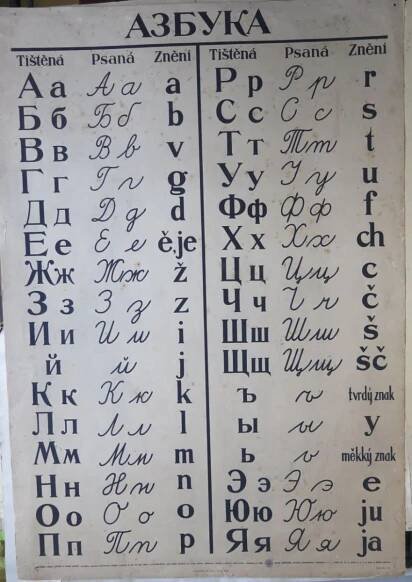 АЗБУКА
Tištěná Psaná Znění
А а А а a
Б б Б б b
В в В в v
Г г Г г g
Д д Д д d
Е е Е е ě,je
Ж ж Ж ж ž
З з З з z
И и И и i
й й j
К к К к k
Л л Л л l
М м М м m
Н н Н н n
О о О о o
П п П п p
Tištěná Psaná Znění
Р р Р р r
С с С с s
Т т Т т t
У у У у u
Ф ф Ф ф f
Х х Х х ch
Ц ц Ц ц c
Ч ч Ч ч č
Ш ш Ш ш š
Щ щ Щ щ šč
ъ ъ tvrdý znak
ы ы y
ь ь měkký znak
Э э Э э e
Ю ю Ю ю ju
Я я Я я ja